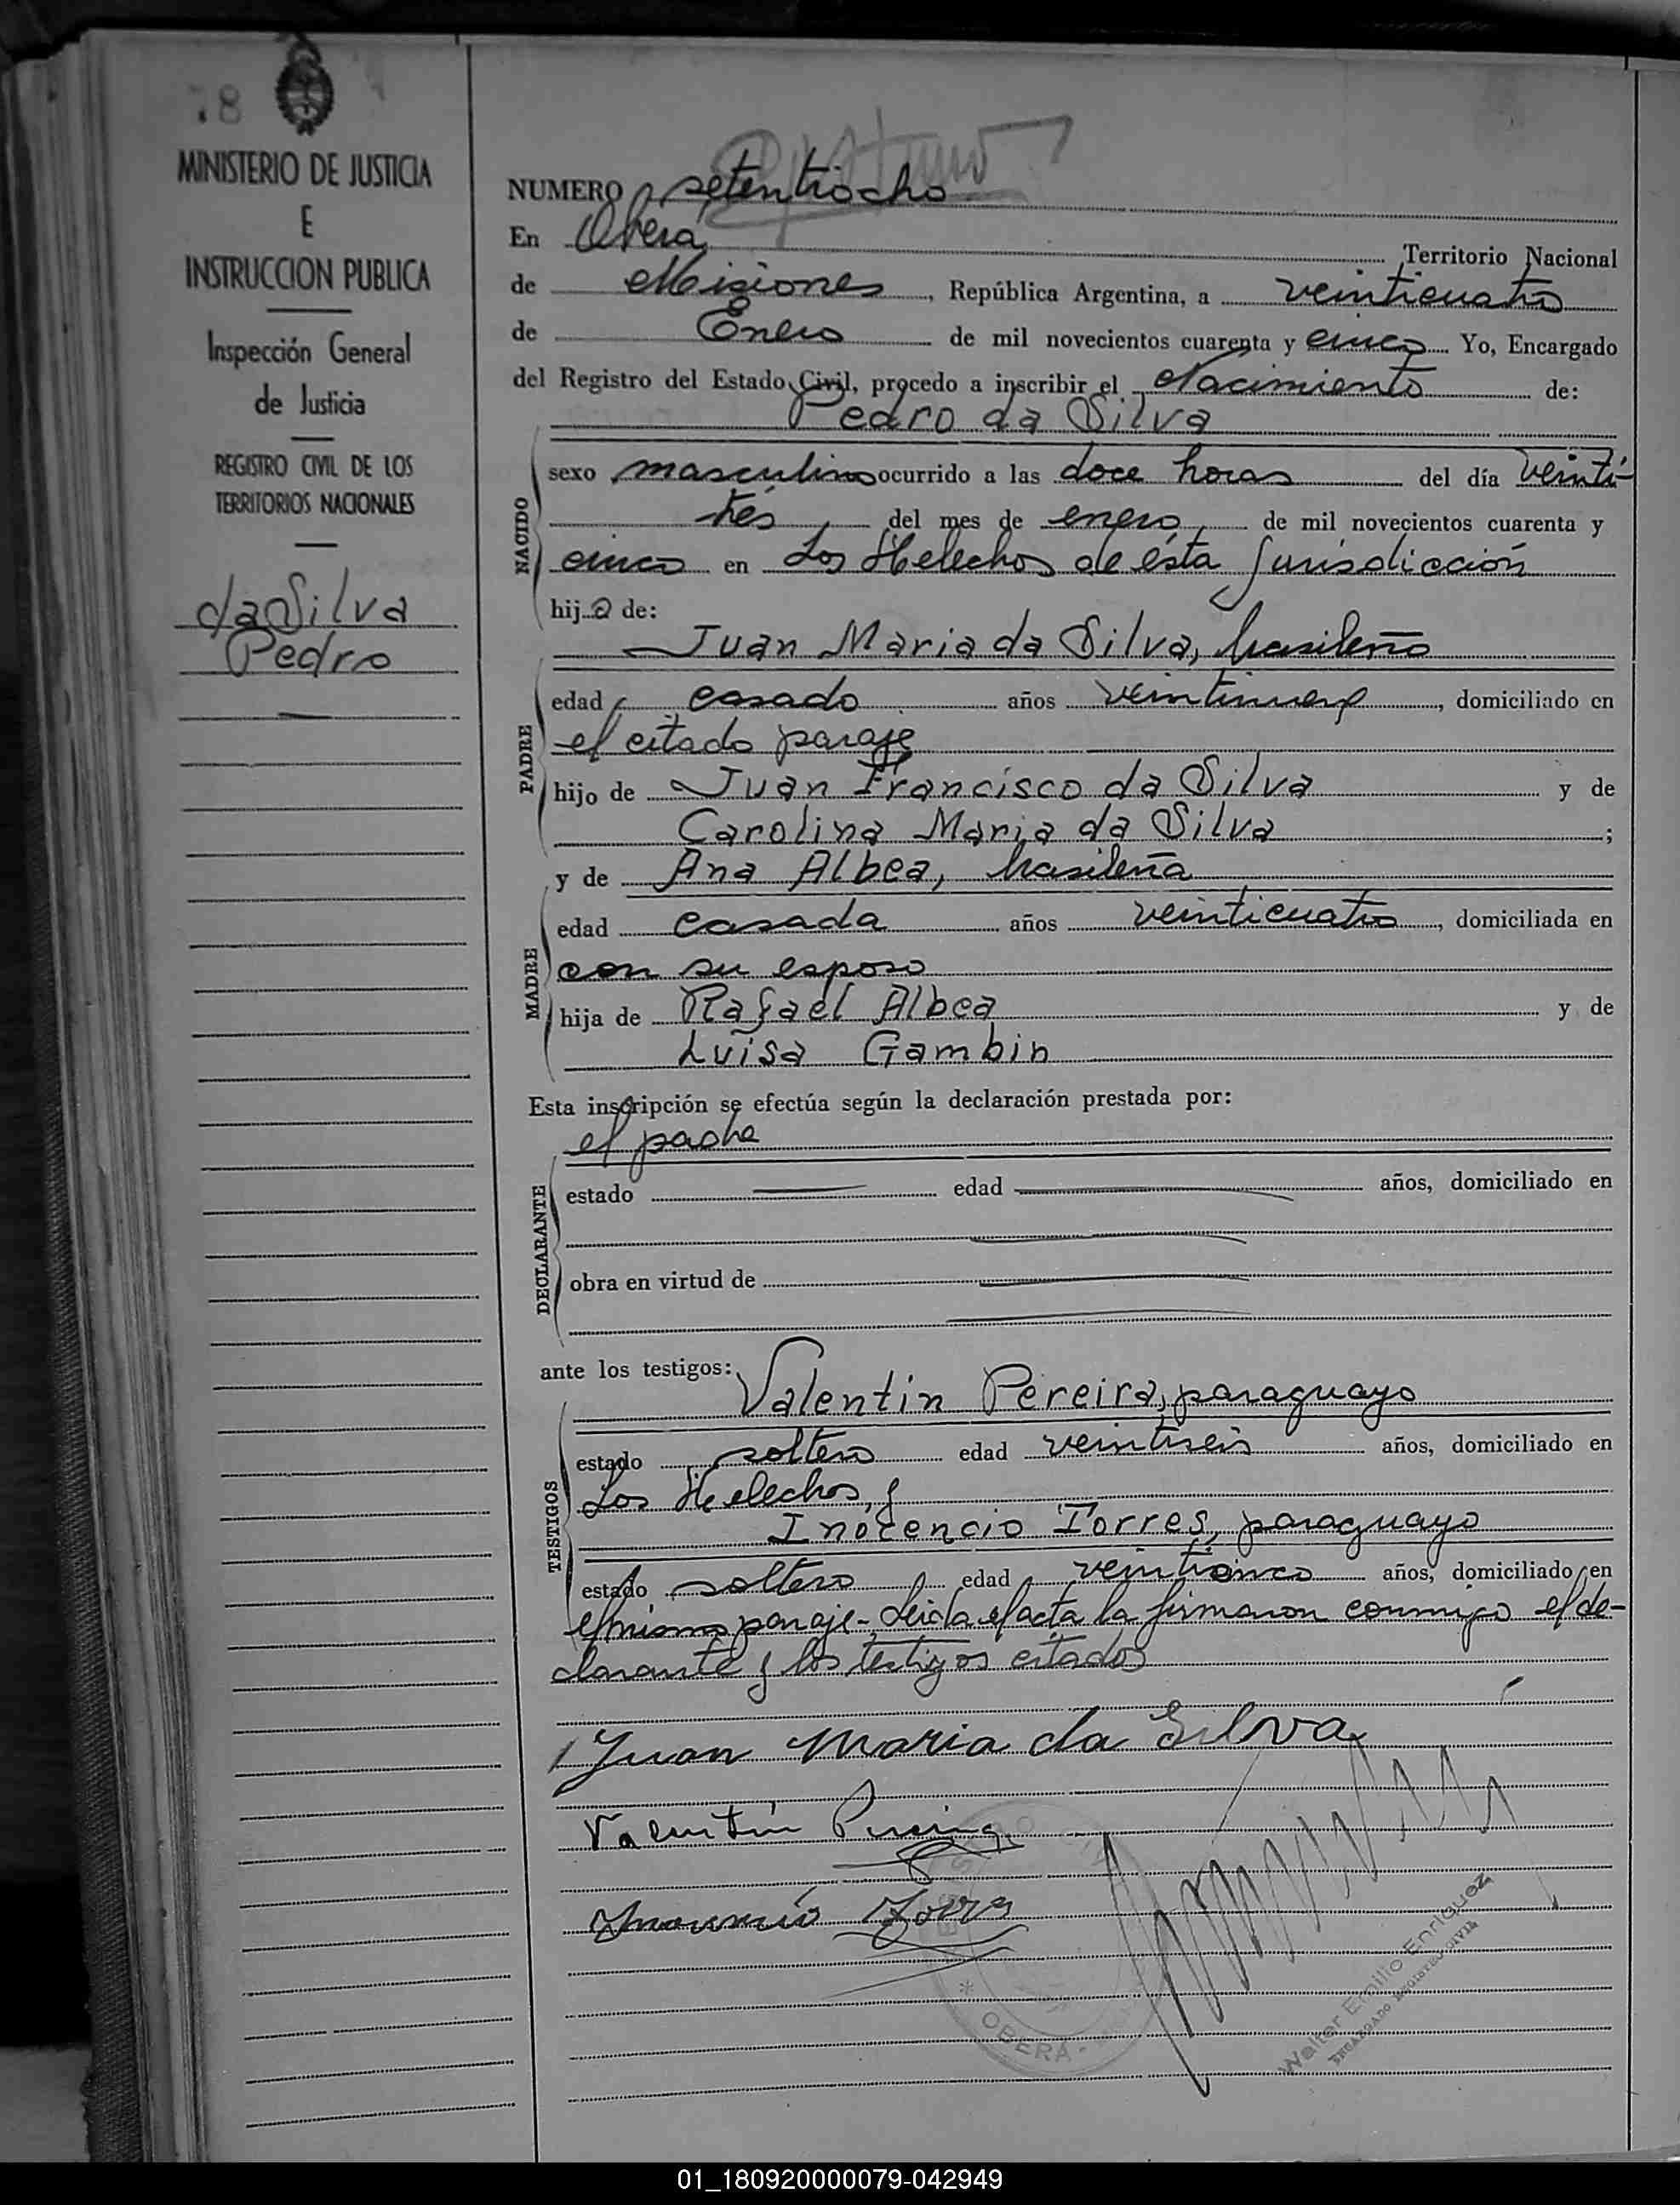 78
MINISTERIO DE JUSTICIA
E
INSTRUCCION PUBLICA
Inspección General
de Justicia
REGISTRO CIVIL DE LOS
TERRITORIOS NACIONALES
da Silva
Pedro
NUMERO setentiocho
En Oberá, Territorio Nacional
de Misiones, República Argentina, a veinticuatro
de Enero de mil novecientos cuarenta y cinco Yo, Encargado
del Registro del Estado Civil, procedo a inscribir el Nacimiento de:
Pedro da Silva
NACIDO
sexo masculino ocurrido a las doce horas del día veinti-
trés del mes de enero de mil novecientos cuarenta y
cinco en Los Helechos de ésta jurisdicción
hijo de:
Juan Maria da Silva, brasileño
PADRE
edad casado años veintinueve, domiciliado en
el citado paraje
hijo de Juan Francisco da Silva y de
Carolina Maria da Silva;
y de Ana Albea, brasileña
MADRE
edad casada años veinticuatro, domiciliada en
con su esposo
hija de Rafael Albea y de
Luisa Gambin
Esta inscripción se efectúa según la declaración prestada por:
el padre
DECLARANTE
estado edad años, domiciliado en
obra en virtud de
ante los testigos:
Valentin Pereira, paraguayo
TESTIGOS
estado soltero edad veintiseis años, domiciliado en
Los Helechos, y
Inocencio Torres, paraguayo
estado soltero edad veinticinco años, domiciliado en
el mismo paraje- Leida el acta la firmaron conmigo el de-
clarante y los testigos citados
Juan Maria da Silva
Valentin
OBERÁ
Walter Emilio Enriquez
ENCARGADO REGISTRO CIVIL
01_180920000079-042949